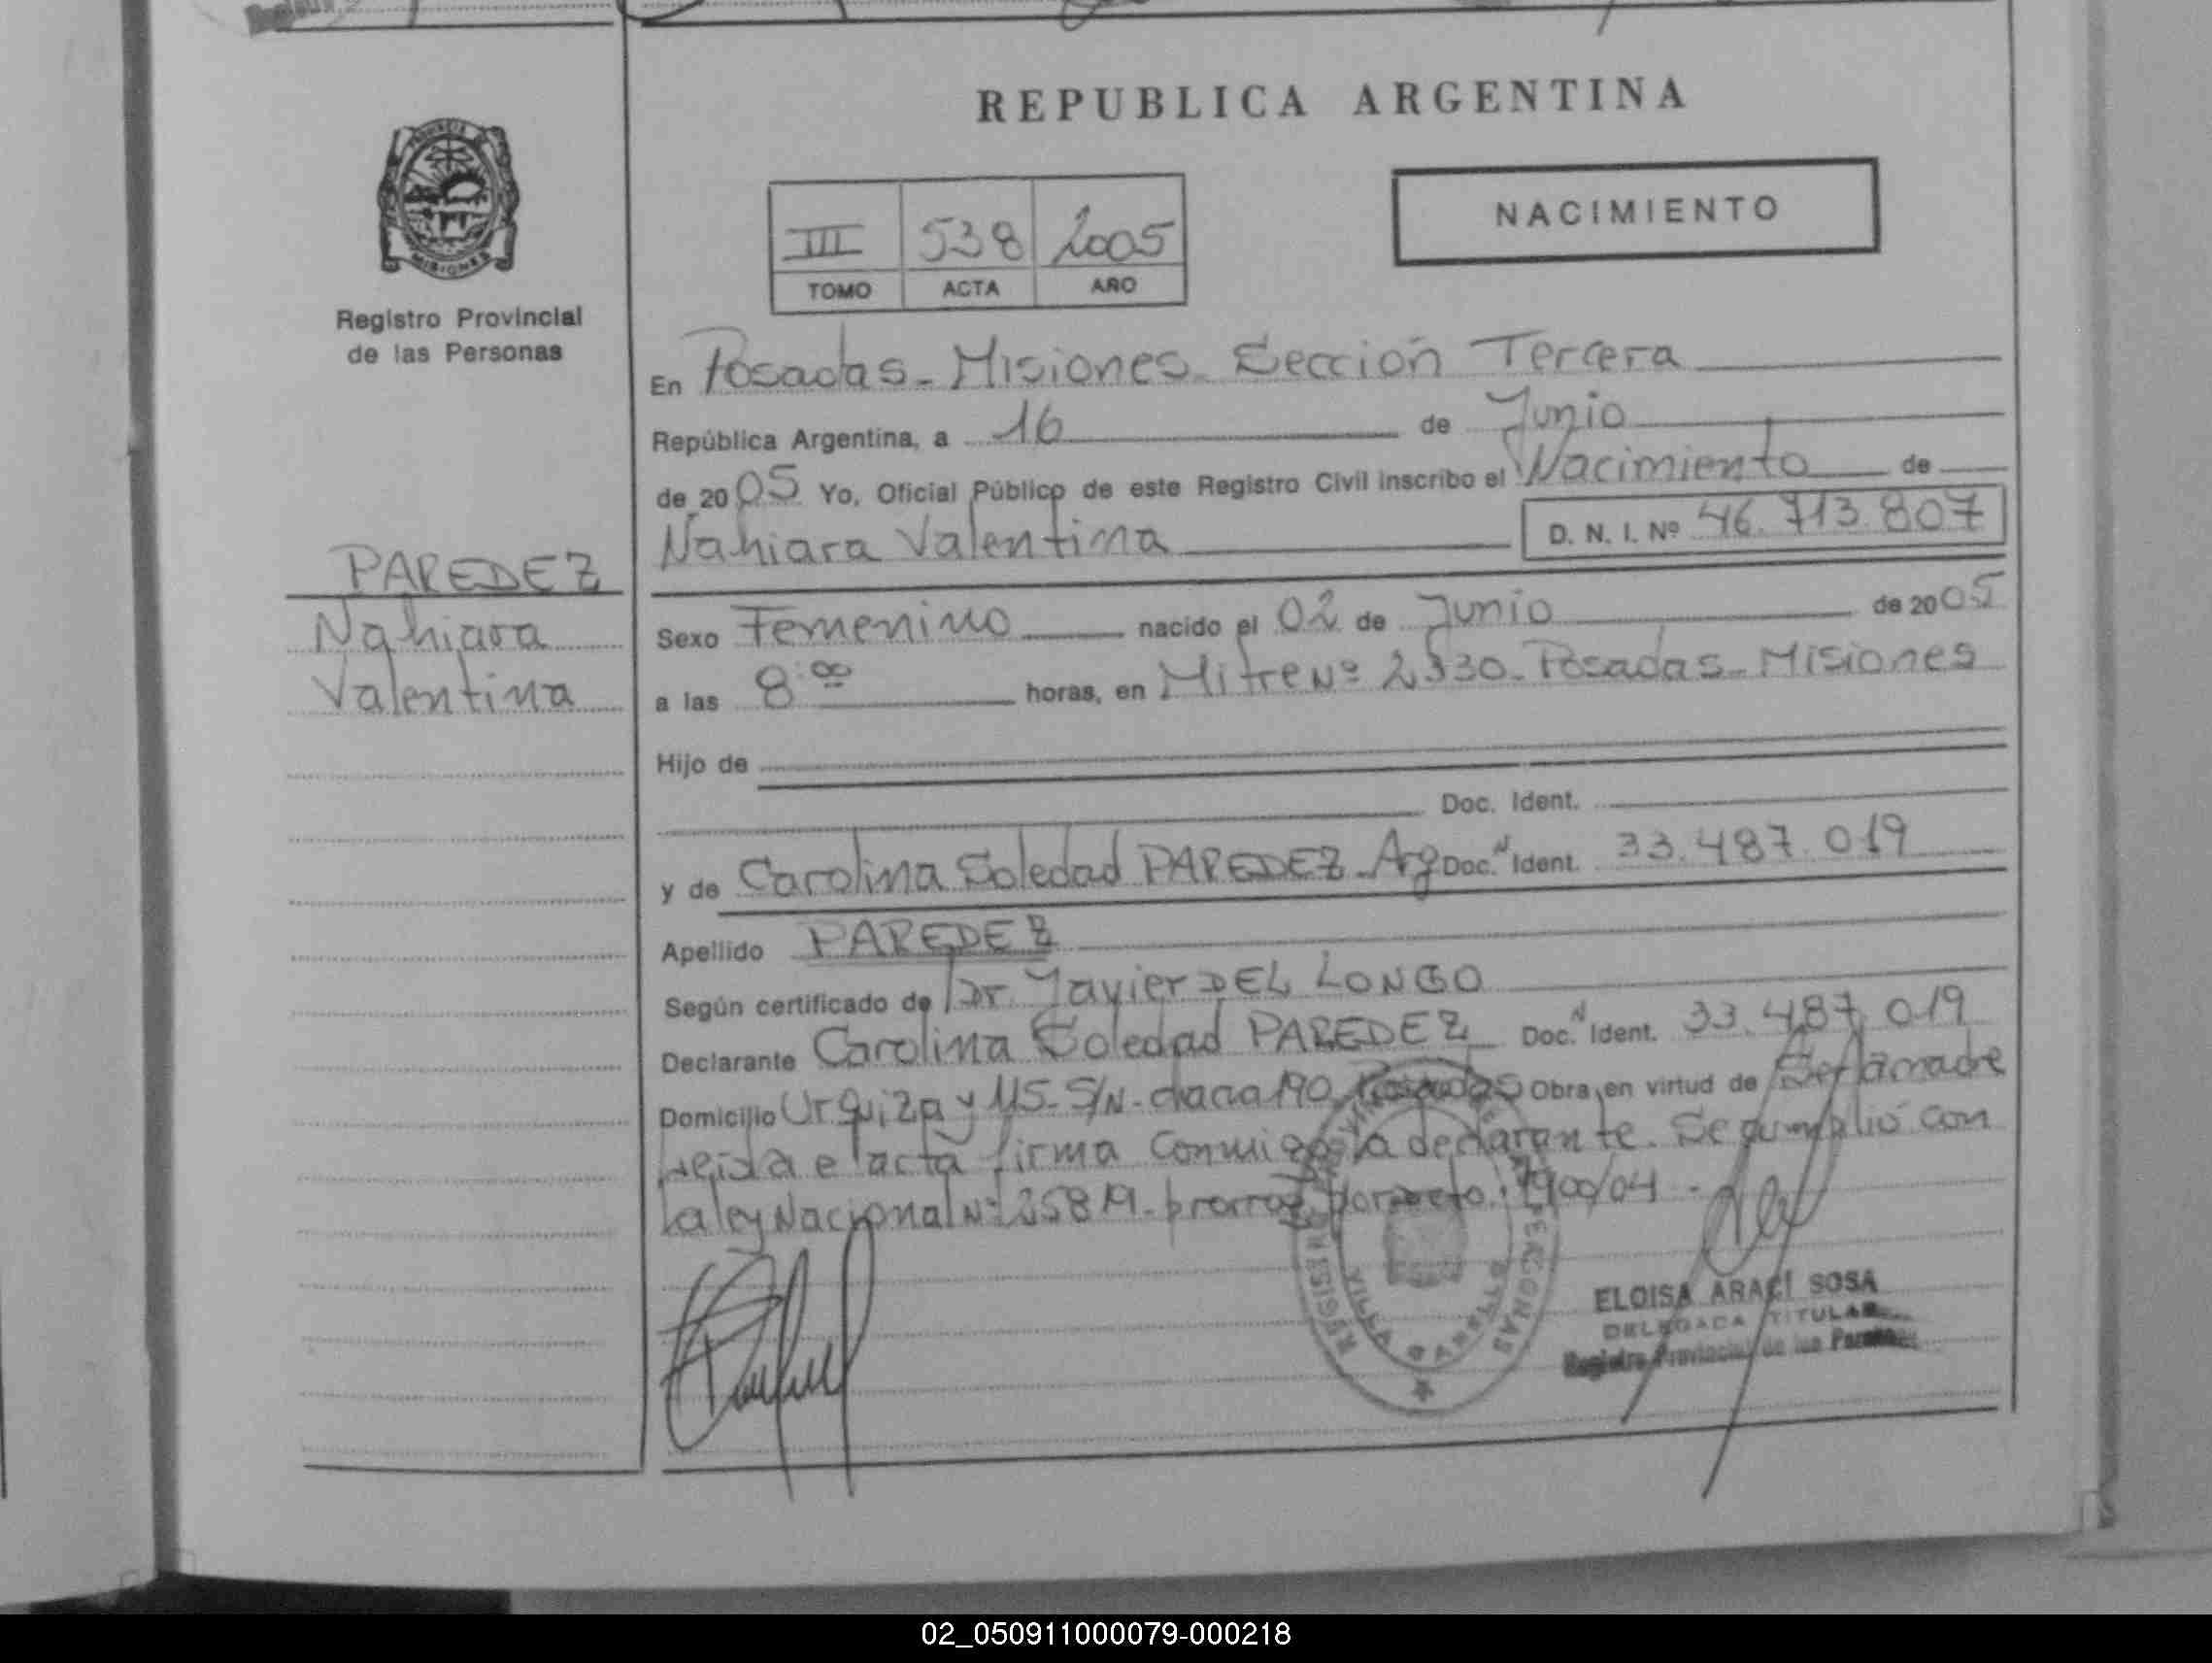 REPUBLICA ARGENTINA
NACIMIENTO
III 538 2005
TOMO ACTA AÑO
MISIONES
Registro Provincial
de las Personas
En Posadas - Misiones - Sección Tercera
República Argentina, a 16 de Junio
de 2005 Yo, Oficial Público de este Registro Civil inscribo el Nacimiento de
Nahiara Valentina D. N. I. Nº 46.713.807
PAREDEZ
Nahiara
Valentina
Sexo Femenino nacido el 02 de Junio de 2005
a las 8:00 horas, en Mitre Nº 2330 - Posadas - Misiones
Hijo de
Doc. Ident.
y de Carolina Soledad PAREDEZ - Arg Doc. N Ident. 33.487.019
Apellido PAREDEZ
Según certificado de Dr. Javier DEL LONGO
Declarante Carolina Soledad PAREDEZ Doc. N Ident. 33.487.019
Domicilio Urquiza y 115 - S/N - chacra 190 Posadas Obra en virtud de Ser la madre
Leida el acta firma conmigo la declarante. Se cumplió con
la ley Nacional Nº 25819 - 1900/04 -
VILLA
ELOISA ARACÍ SOSA
DELEGADA TITULAR
Registro Provincial de las Personas
02_050911000079-000218